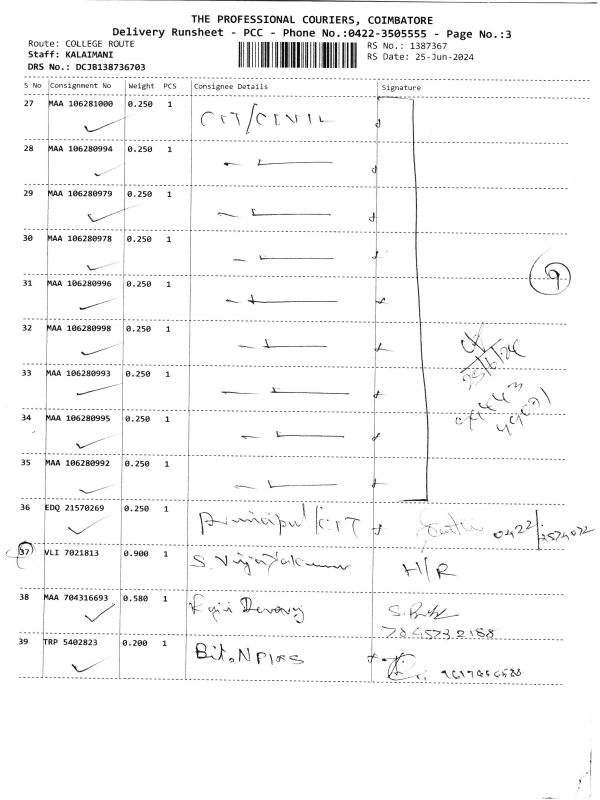 THE PROFESSIONAL COURIERS, COIMBATORE
Delivery Runsheet - PCC - Phone No.:0422-3505555 - Page No.:3
Route: COLLEGE ROUTE
Staff: KALAIMANI
DRS No.: DCJB138736703
RS No.: 1387367
RS Date: 25-Jun-2024
S No Consignment No Weight PCS Consignee Details Signature
27 MAA 106281000 0.250 1 CIT/CIVIL
28 MAA 106280994 0.250 1
29 MAA 106280979 0.250 1
30 MAA 106280978 0.250 1
9
31 MAA 106280996 0.250 1
32 MAA 106280998 0.250 1
25/6/24
33 MAA 106280993 0.250 1
34 MAA 106280995 0.250 1
35 MAA 106280992 0.250 1
36 EDQ 21570269 0.250 1 Principal/CIT
37 VLI 7021813 0.900 1 S. Vijayakumar H/R
38 MAA 704316693 0.580 1
39 TRP 5402823 0.200 1